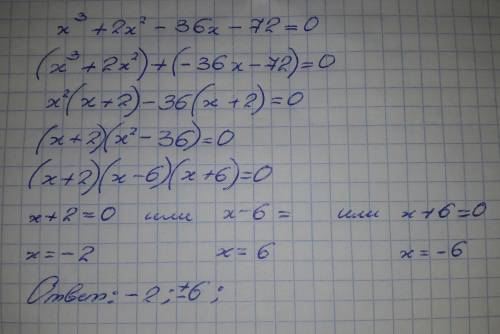 x³ + 2x² - 36x - 72 = 0
(x³ + 2x²) + (-36x - 72) = 0
x²(x + 2) - 36(x + 2) = 0
(x + 2)(x² - 36) = 0
(x + 2)(x - 6)(x + 6) = 0
x + 2 = 0 или x - 6 = или x + 6 = 0
x = -2 x = 6 x = -6
Ответ: -2; ±6;